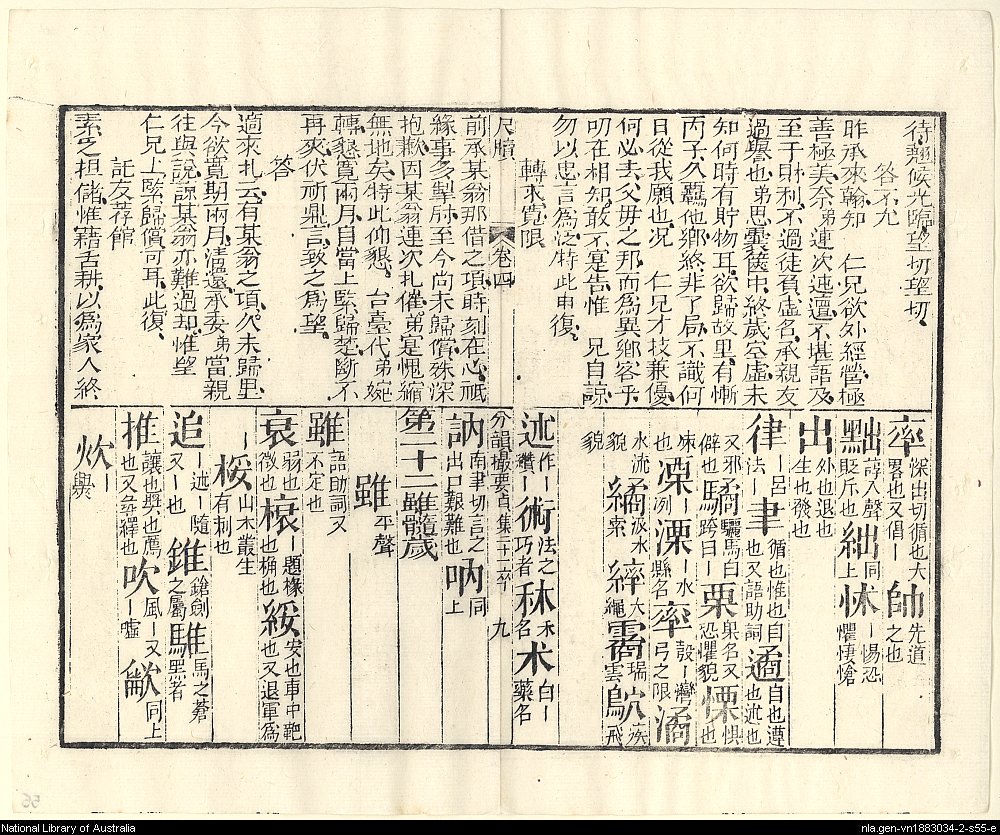 待翹候光臨是切望切
答不允
昨承來翰知 仁兄欲外經營極
善極美奈弟連次迍邅不堪語及
至于財利不過徒負虛名承親友
過譽也弟思囊篋中終歲空虛未
知何時有貯物耳欲歸故里有慚
丙子久羈他鄉終非了局不識何
日從我願也况 仁兄才技兼優
何必去父母之邦而為異鄉客乎
叨在相知敢不寔告惟 兄自諒
勿以忠言為泛特此申復
轉求寬限
尺牘 卷四
前承某翁那借之項時刻在心祇
緣事多掣肘至今尚未歸償殊深
抱歉因某翁連次扎催弟寔愧縮
無地矣特此仰懇 台臺代弟婉
轉懇寬兩月自當上緊歸楚斷不
再爽伏祈鼎言致之為望
答
適來扎云有某翁之項久未歸里
今欲寬期兩月清還承委弟當親
往與說諒某翁亦難過却惟望
仁兄上緊歸償可耳此復
託友荐館
素乏担儲惟藉舌耕以為家人終
率 深出切循也大畧也又倡｜ 帥 先道之也
黜 諄入聲貶斥也 絀 同上 怵 ｜惕恐懼悽愴
出 外也退也生也發也
律 ｜呂法｜ 聿 循也惟也自也又語助詞 遹 自也遵也述也
又邪僻也 驈 驪馬白跨曰｜ 栗 菓名又恐懼貌 慄 惧也
凓 冽 溧 ｜水縣名 率 彀｜彎弓之限 潏
水流貌 繘 汲水索 繂 大繩 霱 瑞雲 鴥 疾飛
貌
述 作｜纘｜ 術 法之巧者 秫 禾名 朮 白｜藥名
分韻撮要貞集二十一卒 九
訥 南聿切言之出口艱難也 吶 同上
第二十二雖髓歲
雖 平聲
雖 語助詞又不定也
衰 弱也微也 榱 ｜題椽也桷也 綏 安也車中靶也又退軍為
｜ 桵 山木叢生有刺也
追 ｜述｜隨又｜也 錐 鎗劍之屬 騅 馬之蒼黑者
推 讓也奬也薦也又尋繹也 吹 風｜又｜噓 龡 同上
炊 ｜爨
National Library of Australia
nla.gen-vn1883034-2-s55-e